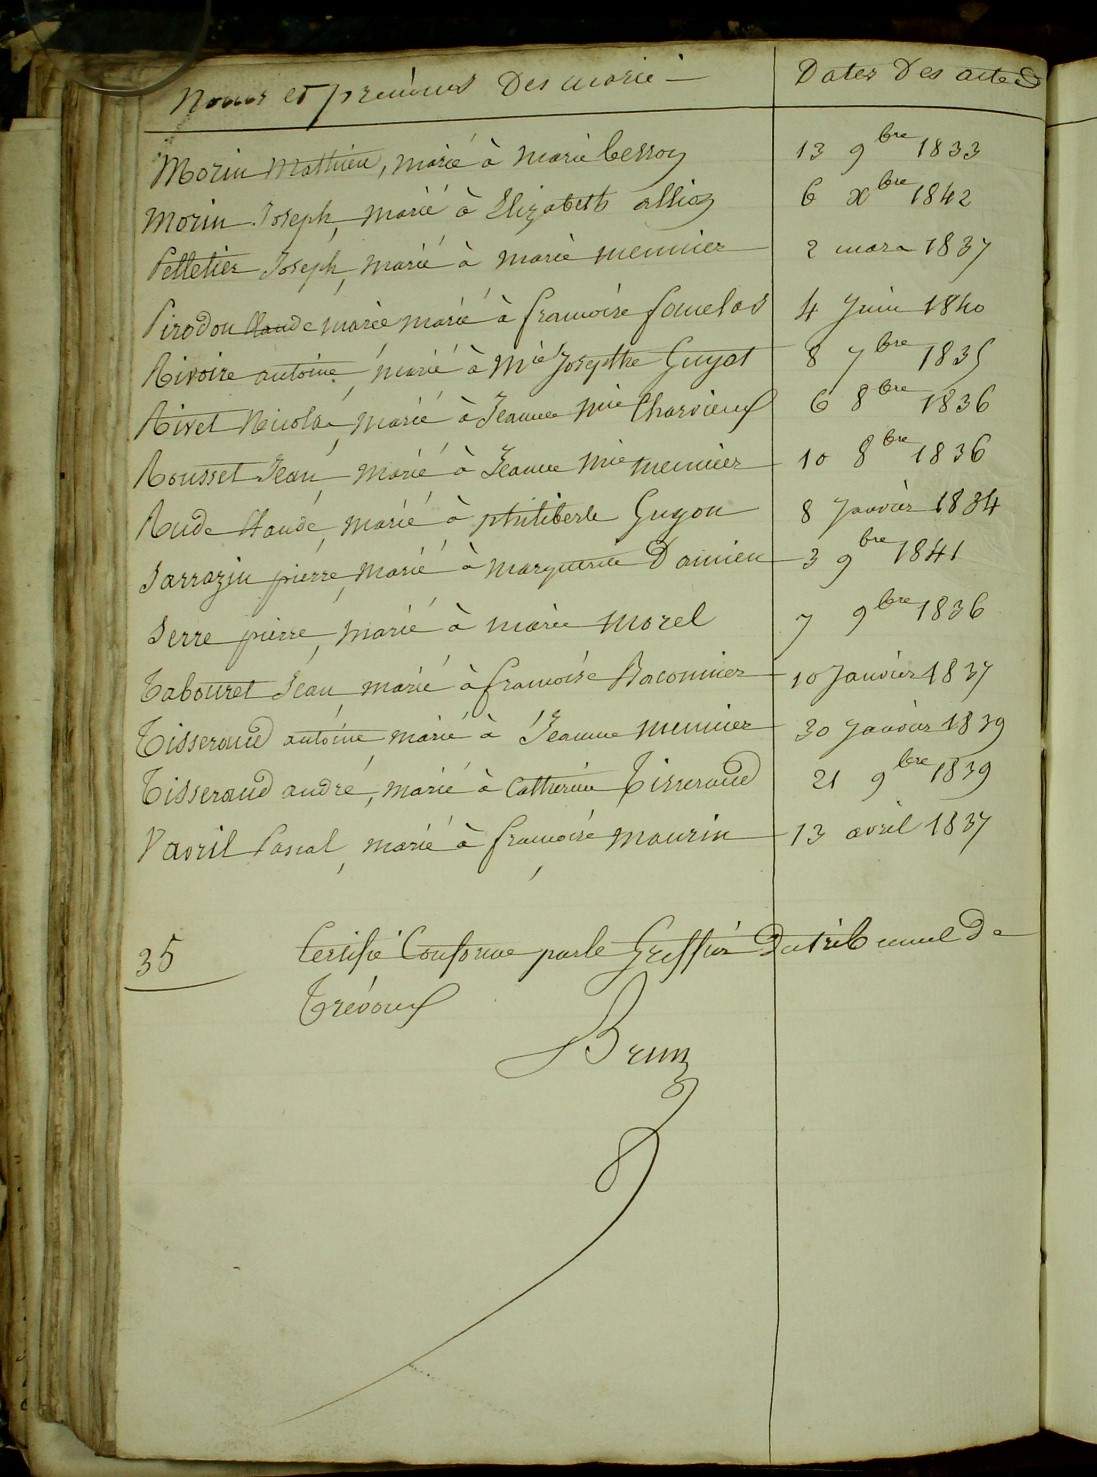 Noms et prénoms Des marié Dates Des actes
Morin Mathieu, marié à marie Cerroy 13 9bre 1833
Morin Joseph, marié à Elizabeth allioz 6 Xbre 1842
Pelletier Joseph, marié à marie meunier 2 mars 1837
Pirodon Claude marie marié à francoise 4 Juin 1840
Rivoire antoine, marié à Mie Josepthe Guyot 8 7bre 1835
Rivet Nicolas, marié à Jeanne mie Charvieux 6 8bre 1836
Rousset Jean, marié à Jeanne mie meunier 10 8bre 1836
Rude Claude, marié à philiberte Guyon 8 Janvier 1834
Sarrazin pierre, marié à marguerite Damien 3 9bre 1841
Serre pierre, marié à marie morel 7 9bre 1836
Tabouret Jean, marié à francoise Baconnier 10 Janvier 1837
Tisserand antoine marié à Jeanne meunier 30 Janvier 1839
Tisserand andré, marié à Catherine Tisserand 21 9bre 1839
Vavril Pascal, marié à francoise maurin 13 avril 1837
35 Certifié Conforme par le Greffier du tribunal de
Trévoux
Brun